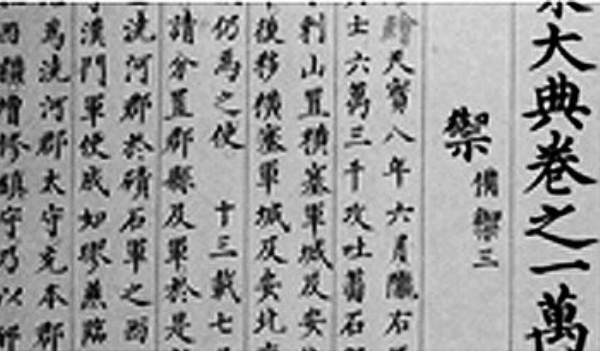 大典卷之一萬
禦
備禦三
天寶八年六月隴右
士六萬三千攻吐蕃石
利山置橫塞軍城及安
後移橫塞軍城及安北
仍為之使 十三載七
請分置郡縣及軍於是
洮河郡於磧石軍之西
漢門軍使成如璆兼臨
為洮河郡太守充本郡
鎮守乃以